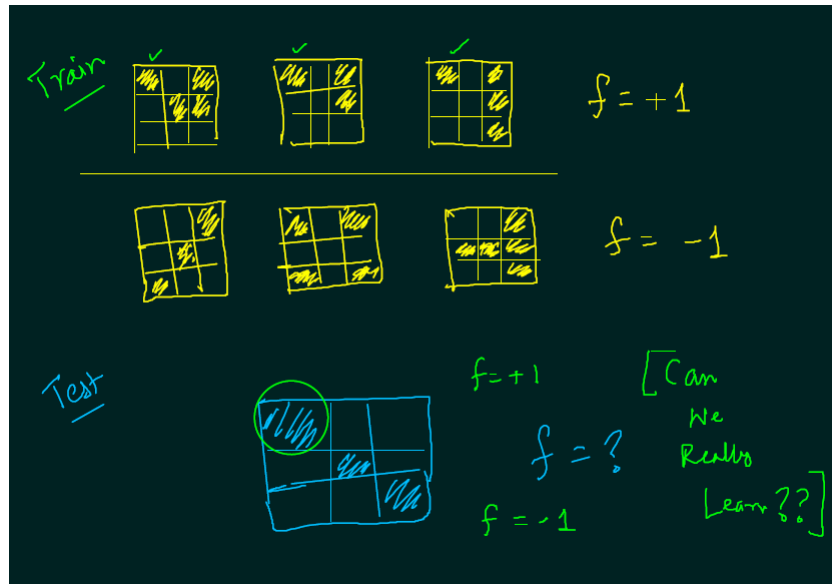 Train
f = +1
f = -1
Test
f=+1
f = ?
f = -1
[Can
We
Really
Learn??]